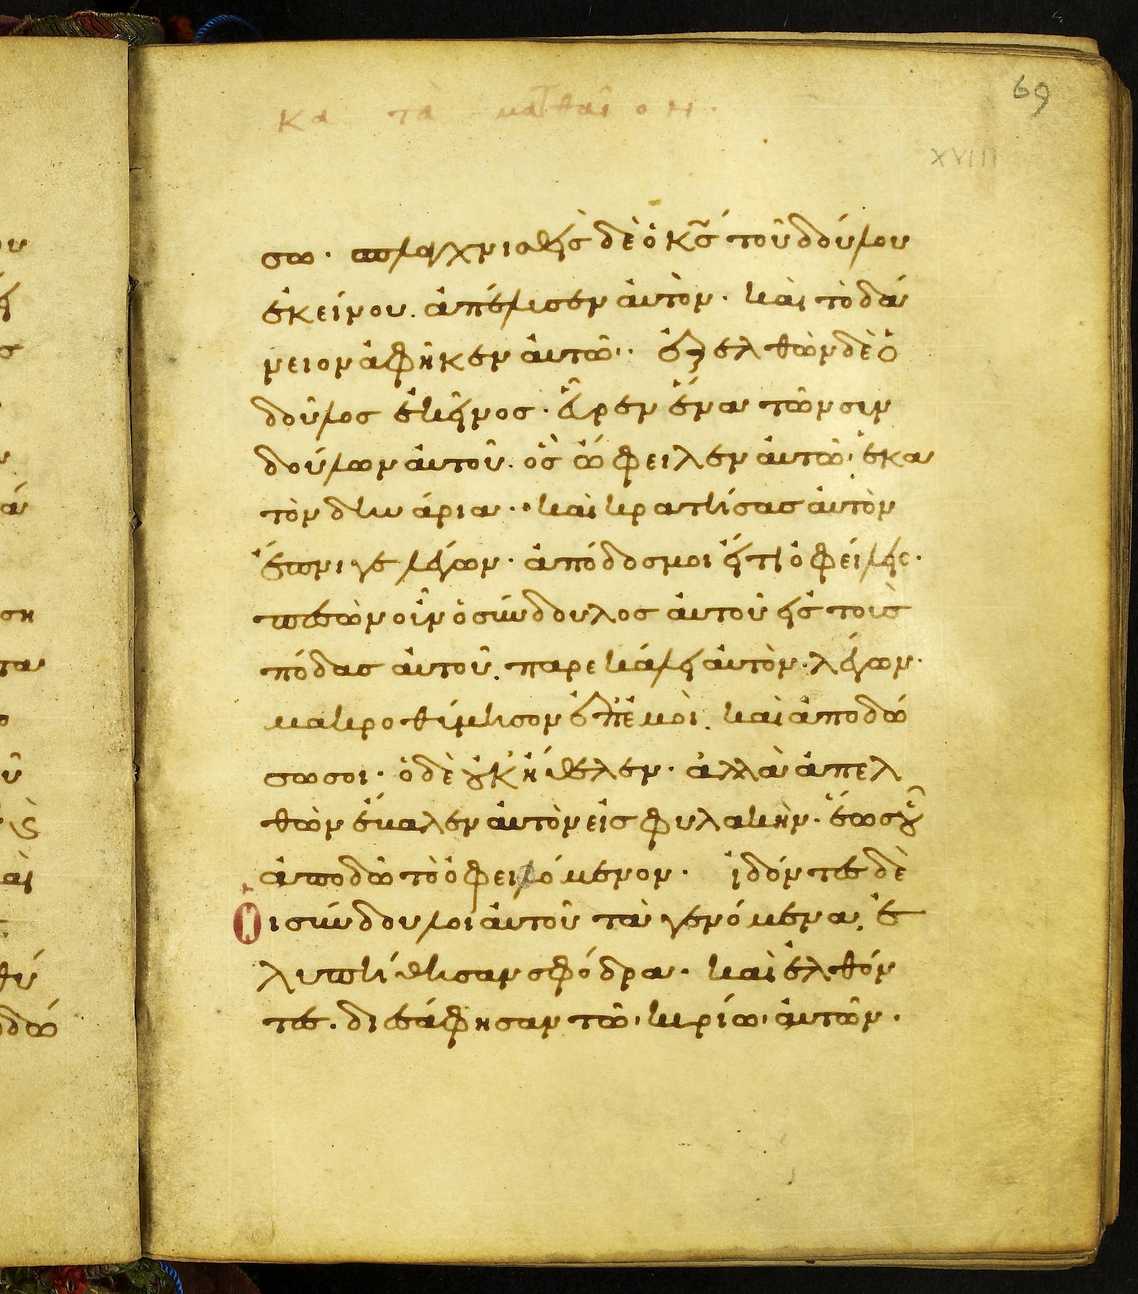 κα τὰ ματθαῖον.
69
XVIII
σω· σπλαχνισθεὶς δὲ ὁ κ̅ς̅ τοῦ δούλου
ἐκείνου. ἀπέλυσεν αὐτὸν· καὶ τὸ δά
νειον ἀφῆκεν αὐτῶ·· ἐξελθὼν δὲ ὁ
δοῦλος ἐκεῖνος· εὗρεν ἕνα τῶν συν
δούλων αὐτοῦ· ὃς ὤφειλεν αὐτῶ· ἑκα
τὸν δηνάρια· καὶ κρατήσας αὐτὸν
ἔπνιγε λέγων· ἀπόδος μοι εἴ τι ὀφείλεις·
πεσὼν οὖν ὁ σύνδουλος αὐτοῦ εἰς τοὺς
πόδας αὐτοῦ, παρεκάλει αὐτὸν· λέγων·
μακροθύμησον ἐπ' ἐμοὶ, καὶ ἀποδώ
σω σοι· ὁ δὲ οὐκ ἤθελεν· ἀλλὰ ἀπελ
θὼν ἔβαλεν αὐτὸν εἰς φυλακὴν· ἕως οὗ
ἀποδῶ τὸ ὀφειλόμενον· ἰδόντες δὲ
Οἱ σύνδουλοι αὐτοῦ τὰ γενόμενα, ἐ
λυπήθησαν σφόδρα· καὶ ἐλθόν
τες. διεσάφησαν τῶ· κυρίω· αὐτῶν·